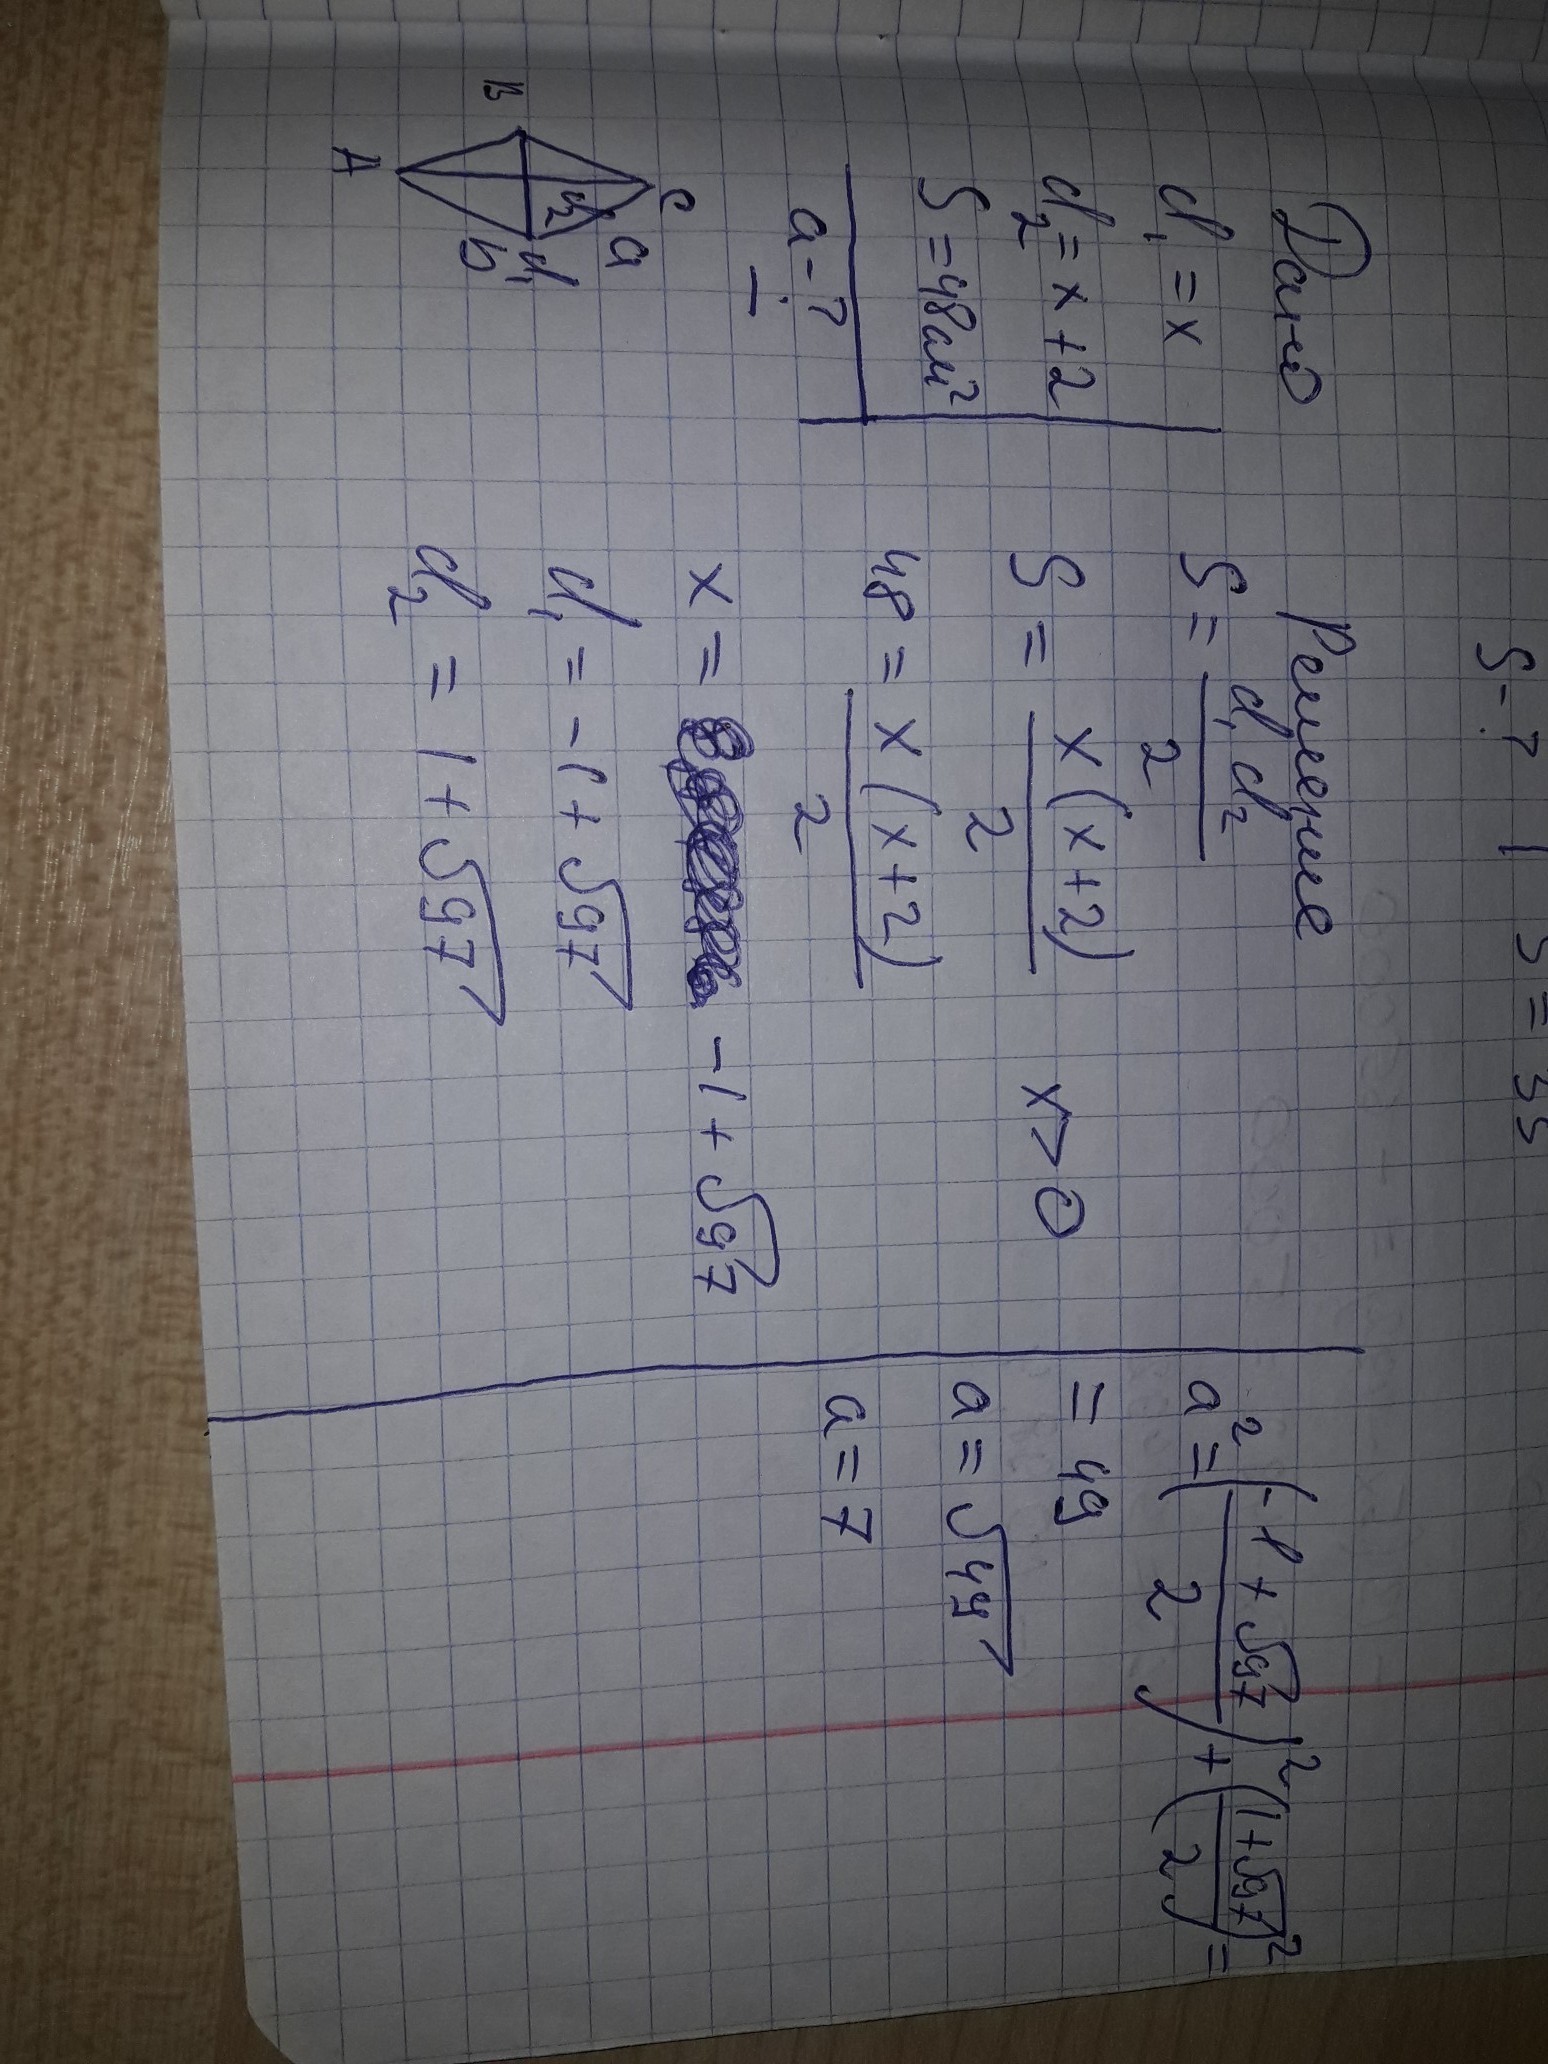 S-? | S = 35
Дано
d₁ = x
d₂ = x + 2
S = 48см²
a - ?
C
a
d₂
d₁
B
b
A
Решение
S = d₁ d₂ / 2
S = x(x+2) / 2    x > 0
48 = x(x+2) / 2
x = -1 + √97
d₁ = -1 + √97
d₂ = 1 + √97
a² = (-1 + √97 / 2)² + (1+√97 / 2)² =
= 49
a = √49
a = 7